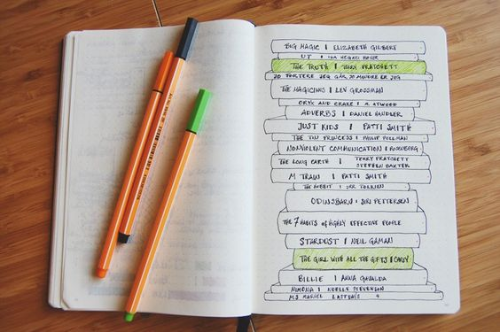 BIG MAGIC | ELIZABETH GILBERT
THE TRUTH | TERRY PRATCHETT
JO FORTERE JEG GÅR, JO MINDRE ER JEG
THE MAGICIANS | LEV GROSSMAN
ORYX AND CRAKE | M ATWOOD
ADVERBS | DANIEL HANDLER
JUST KIDS | PATTI SMITH
THE TIN PRINCESS | PHILIP PULLMAN
NONVIOLENT COMMUNICATION | ROSENBERG
THE LONG EARTH | TERRY PRATCHETT
STEPHEN BAXTER
M TRAIN | PATTI SMITH
THE HOBBIT | JRR TOLKIEN
ODINSBARN | SIRI PETTERSEN
THE 7 HABITS OF HIGHLY EFFECTIVE PEOPLE
STARDUST | NEIL GAIMAN
THE GIRL WITH ALL THE GIFTS | CAREY
BILLIE | ANNA GAVALDA
NIMONA | NOELLE STEVENSON
MS MARVEL